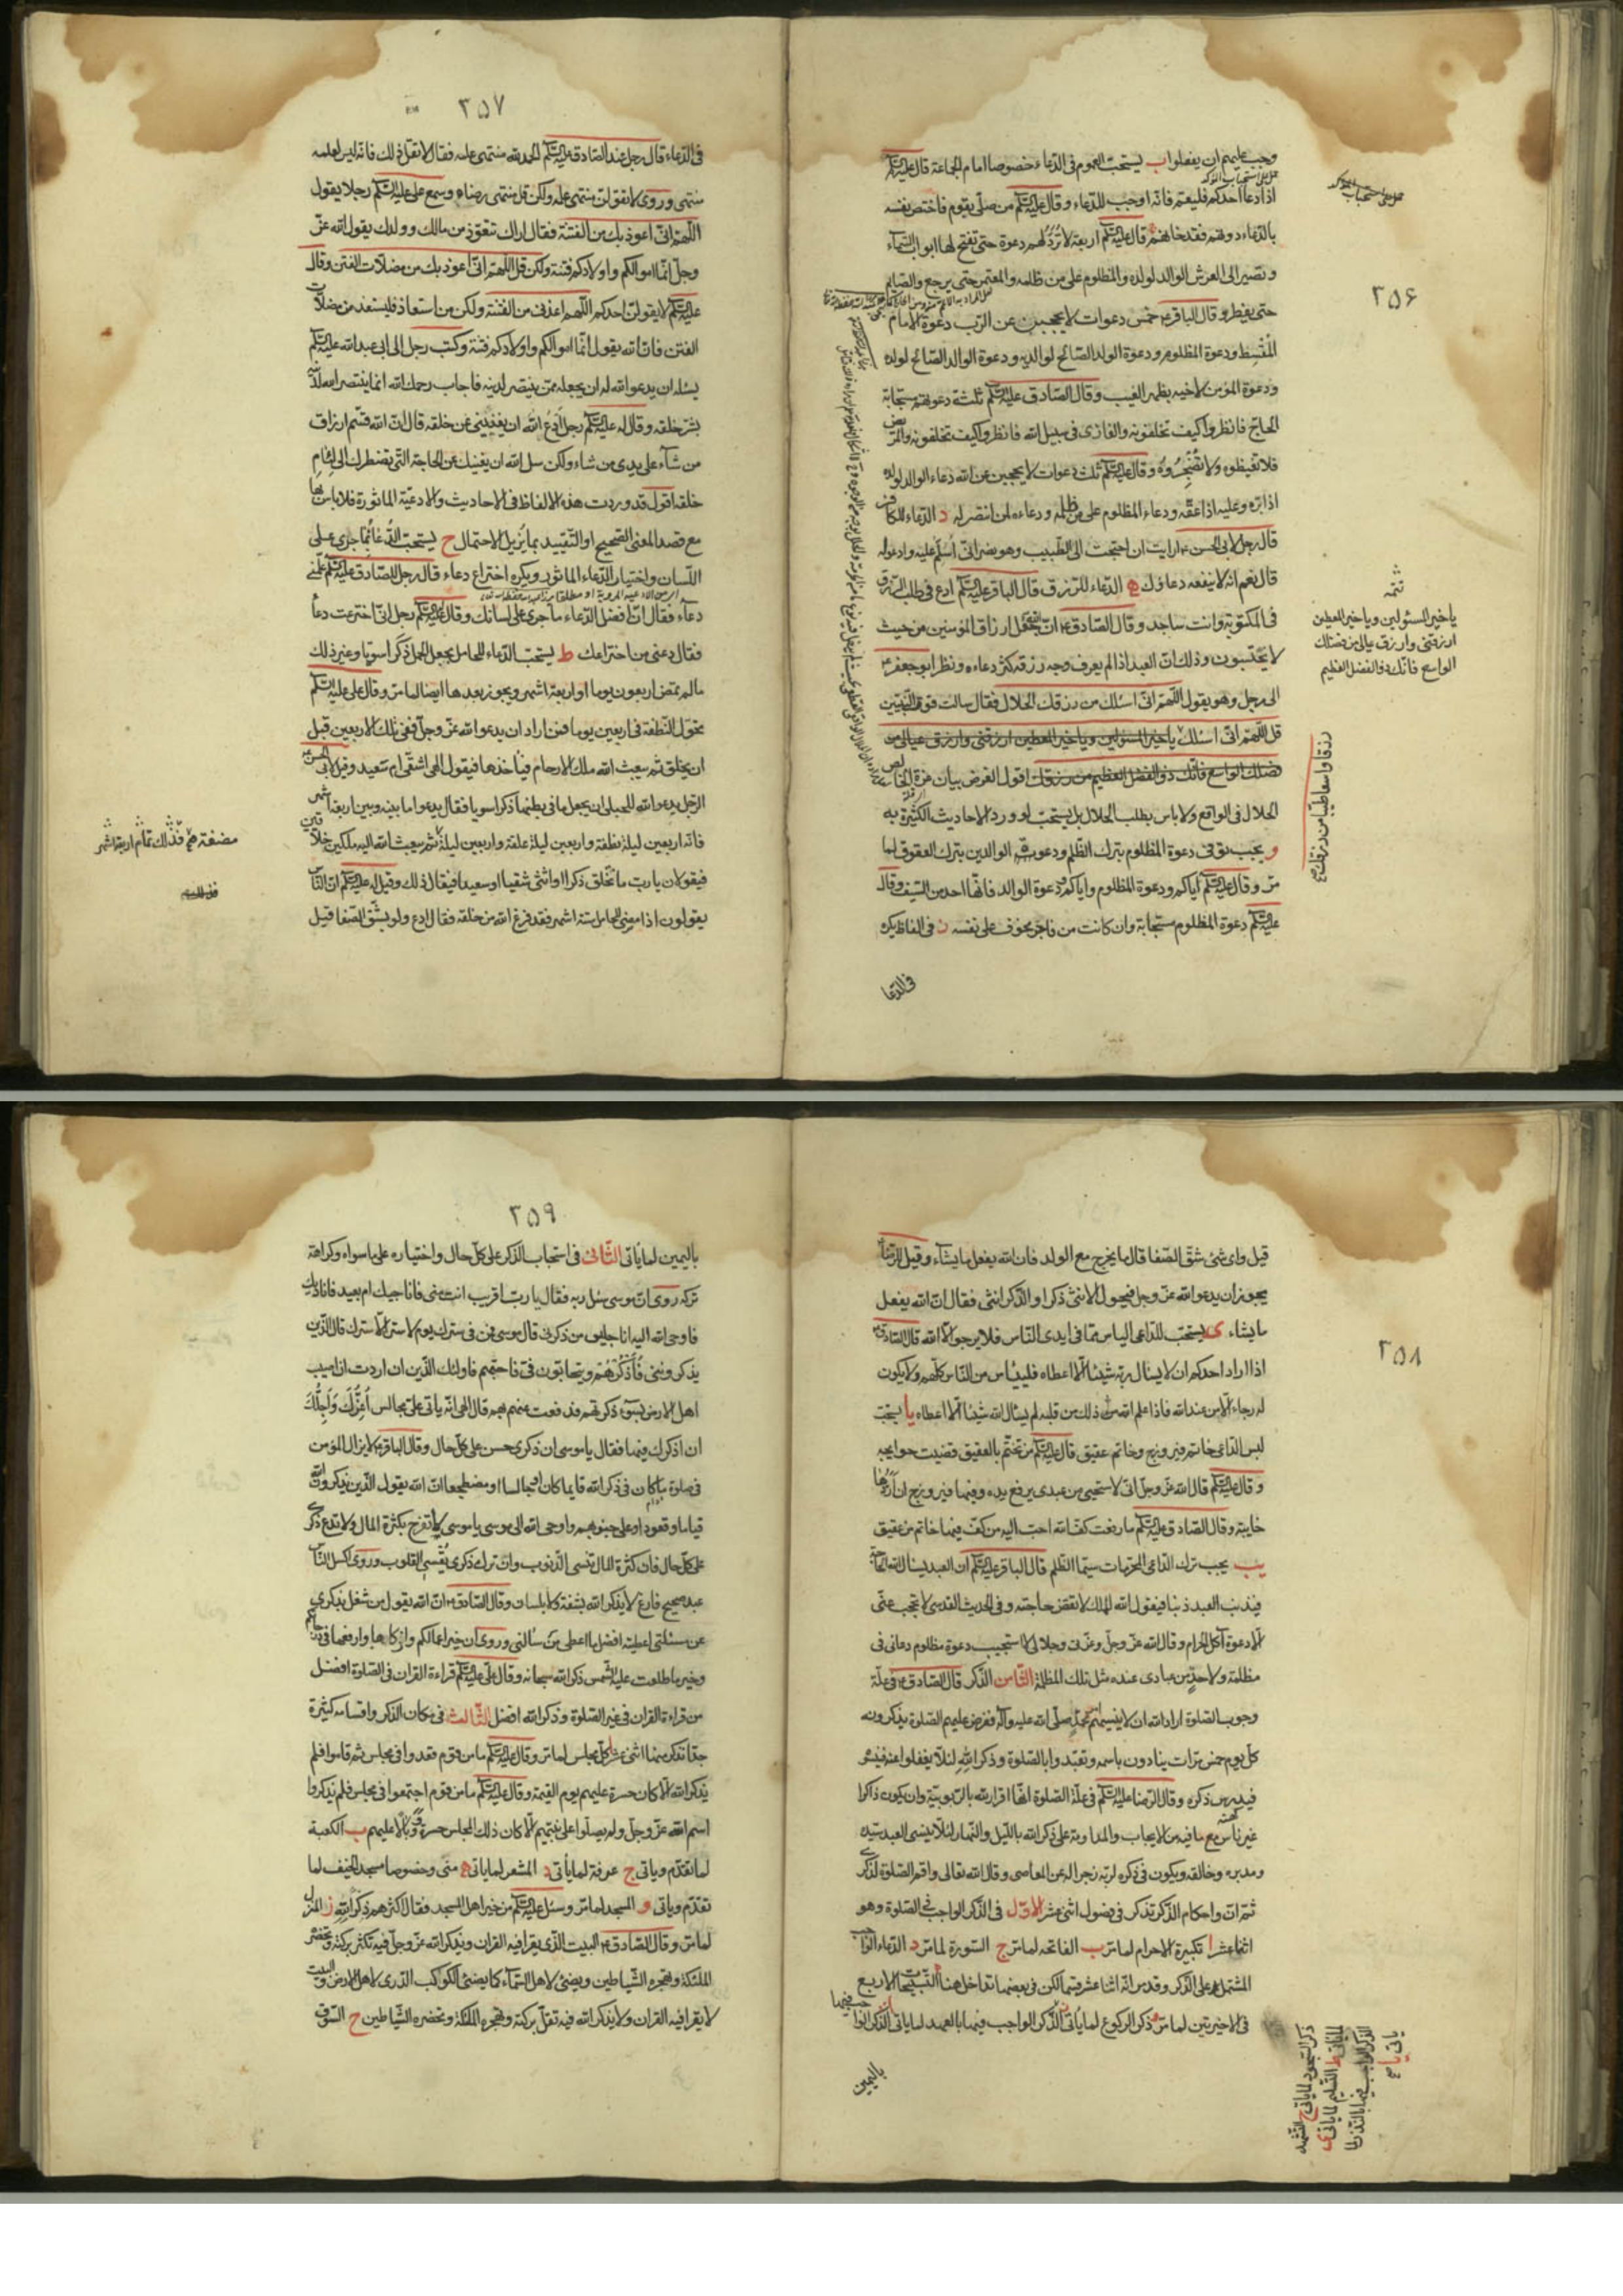 ٣٥۶
وجب عليهم ان يفعلوا ب يستحب العموم فى الدّعاء خصوصا امام الجماعة قال عليه السّلم
اذا دعا احدكم فليعم فانّه اوجب للدّعاء و قال عليه السّلم من صلّى بقوم فاختص نفسه
بالدّعاء دونهم فقد خانهم قال عليه السّلم اربعة لا تُرَدُّ لهم دعوة حتى تفتح لها ابواب السّماء
و تصير الى العرش الوالد لولده و المظلوم على من ظلمه و المعتمر حتى يرجع و الصّايم
حتى يفطر و قال الباقر خمس دعوات لا يحجبن عن الرّب دعوة الامام
المُقْسِط و دعوة المظلوم و دعوة الولد الصّالح لوالديه و دعوة الوالد الصّالح لولده
و دعوة المؤمن لاخيه بظهر الغيب و قال الصّادق عليه السّلم ثلثة دعوتهم مستجابة
الحاجّ فانظروا كيف تخلفونه و الغازى فى سبيل الله فانظروا كيف تخلفونه و المريض
فلا تغيظوه و لا تُضْجِرُوهُ و قال عليه السّلم ثلث دعوات لا يحجبن عن الله دعاء الوالد لولده
اذا برّه و عليه اذا عقّه و دعاء المظلوم على من ظلمه و دعاءه لمن انتصر له د الدّعاء للكافر
قال رجل لابى الحسن ارايت ان احتجت الى الطّبيب و هو نصرانىّ اُسلّم عليه و ادعو له
قال نعم انه لا ينفعه دعاؤك ه الدّعاء للرّزق قال الباقر عليه السّلم ادع فى طلب الرّزق
فى المكتوبة و انت ساجد و قال الصّادق انّ الله جعل ارزاق المؤمنين من حيث
لا يحتسبون و ذلك انّ العبد اذا لم يعرف وجه رزقه كثر دعاءه و نظر ابو جعفر
الى رجل و هو يقول اللّهم انّى اسئلك من رزقك الحلال فقال سالت قوت النّبيّين
قل اللّهم انّى اسئلك يا خير المسؤلين و يا خير المعطين ارزقنى و ارزق عيالى من
فضلك الواسع فانّك ذو الفضل العظيم من رزقك اقول الغرض بيان عزة الخالص
الحلال فى الواقع و لا باس بطلب الحلال بل يستحب لورود الاحاديث الكثيرة به
و يجب توقى دعوة المظلوم بترك الظّلم و دعوة الوالدين بترك العقوق لما
مرّ و قال عليه السّلم اياكم و دعوة المظلوم و اياكم و دعوة الوالد فانّها احد من السّيف و قال
عليه السّلم دعوة المظلوم مستجابة و ان كانت من فاجر مخوف على نفسه ز فى الفاظ يكره
فى الدّعا
تتمه
يا خير المسئولين و يا خير المعطين
ارزقنى و ارزق عيالى من فضلك
الواسع فانّك ذو الفضل العظيم
رزقا واسعا طيبا من رزقك
٣٥٧
فى الدّعاء قال رجل عند الصّادق عليه السّلم الحمد لله منتهى علمه فقال لا تقل ذلك فانّه ليس لعلمه
منتهى و روى لا تقولنّ منتهى علمه و لكن قل منتهى رضاه و سمع على عليه السّلم رجلا يقول
اللّهم انّى اعوذ بك من الفتنة فقال اراك تتعوّذ من مالك و ولدك يقول الله عزّ
و جلّ انّما اموالكم و اولادكم فتنة و لكن قل اللّهم انّى اعوذ بك من مضلّات الفتن و قال
عليه السّلم لا يقولنّ احدكم اللّهم اعذنى من الفتنة و لكن من استعاذ فليستعذ من مضلّات
الفتن فانّ الله يقول انّما اموالكم و اولادكم فتنة و كتب رجل الى ابى عبد الله عليه السّلم
يسئله ان يدعو الله له ان يجعله ممّن ينتصر لدينه فاجاب رحمك الله انما ينتصر الله لدينه
بشرّ خلقه و قال له عليه السّلم رجل اُدعُ الله ان يغنينى عن خلقه قال انّ الله قسّم ارزاق
من شاء على يدى من شاء و لكن سل الله ان يغنيك عن الحاجة التّى تضطرك الى لئام
خلقه اقول قد وردت هذه الالفاظ فى الاحاديث و الادعيّة الماثورة فلا باس بها
مع قصد المعنى الصّحيح او التّقييد بما يزيل الاحتمال ح يستحب الدّعاء بما جرى على
اللّسان و اختيار الدّعاء الماثور و يكره اختراع دعاء قال رجل للصّادق عليه السّلم علّمنى
دعاء فقال انّ افضل الدّعاء ما جرى على لسانك و قال عليه السّلم رجل انّى اخترعت دعاً
فقال دعنى من اختراعك ط يستحب الدّعاء للحامل بجعل الحمل ذكرا سويا و غير ذلك
ما لم تمض اربعون يوما او اربعة اشهر و يجوز بعدها ايضا لما مرّ و قال على عليه السّلم
تحوّل النّطفة فى اربعين يوما فمن اراد ان يدعو الله عزّ و جلّ ففى تلك الاربعين قبل
ان يخلق ثم يبعث الله ملك الارحام فياخذها فيقول الهى اشقىّ ام سعيد و قيل لابى الحسن
الرّجل يدعو الله للحبلى ان يجعل ما فى بطنها ذكرا سويا فقال يدعو ما بينه و بين اربعة اشهر
فانّه اربعين ليلة نطفة و اربعين ليلة علقة و اربعين ليلة ثم يبعث الله اليه ملكين خلّاقين
فيقولان يا ربّ ما تخلق ذكرا او انثى شقيا او سعيدا فيقال ذلك و قيل له عليه السّلم انّ النّاس
يقولون اذا مضى للحامل ستة اشهر فقد فرغ الله من خلقه فقال ادع و لو بشقّ الصّفا قيل
مضغة فذلك تمام اربعة اشهر
٣٥٨
قيل و اى شئ شقّ الصّفا قال ما يخرج مع الولد فان الله يفعل ما يشاء و قيل للرّضا
يجوز ان يدعو الله عزّ و جل فيحول الانثى ذكرا و الذّكر انثى فقال انّ الله يفعل
ما يشاء ى يستحب للدّاعى الياس ممّا فى ايدى النّاس فلا يرجو الّا الله قال الصّادق
اذا اراد احدكم ان لا يسال ربّه شيئا الّا اعطاه فليياس من النّاس كلّهم و لا يكون
له رجاء الّا من عند الله فاذا علم الله من ذلك من قلبه لم يسال الله شيئا الّا اعطاه يا يستحب
لبس الدّاعى خاتم فيروزج و خاتم عقيق قال عليه السّلم من تختّم بالعقيق قضيت حوايجه
و قال عليه السّلم قال الله عزّ و جلّ انّى لاستحيى من عبدى يرفع يده و فيها فيروزج ان اردّها
خايبة و قال الصّادق عليه السّلم ما رفعت كفّ الله احبّ اليه من كفّ فيها خاتم من عقيق
يب يجب ترك الدّاعى المحرّمات سيّما الظّلم قال الباقر عليه السّلم ان العبد يسال الله الحاجة
فيذنب العبد ذنبا فيقول الله للملك لا تقض حاجته و فى الحديث القدسى لا تحجب عنّى
الّا دعوة آكل الحرام و قال الله عزّ و جلّ و عزّتى و جلالى لا استجيب دعوة مظلوم دعانى فى
مظلمة و لاحد من عبادى عنده مثل تلك المظلمة الثّامن الذّكر قال الصّادق فى علّة
وجوب الصّلوة اراد الله ان لا ينسيهم امر محمّد صلّى الله عليه و آله ففرض عليهم الصّلوة يذكرونه
كلّ يوم خمس مرّات ينادون باسمه و تعبّدوا بالصّلوة و ذكر الله لئلا يغفلوا عنه فينسوه
فيدرس ذكره و قال الرّضا عليه السّلم فى علّة الصّلوة انّها اقرار لله بالرّبوبيّة و ان يكون ذاكرا
غير ناس مع ما فيه من الايجاب و المداومة على ذكر الله بالليل و النّهار لئلا ينسى العبد سيّده
و مدبره و خالقه و يكون فى ذكره لربّه زجرا له عن المعاصى و قال الله تعالى و اقم الصّلوة لذكرى
ثم انّ احكام الذّكر تذكر فى فصول اثنى عشر الاوّل فى الذّكر الواجب فى الصّلوة و هو
اثنا عشر ا تكبيرة الاحرام لما مرّ ب الفاتحه لما مرّ ج السّورة لما مرّ د الدّعاء الواجب
المشتمل على الذّكر و قد مر انّه اثنا عشر قسما لكن فى بعضها تداخل هنا ه التّسبيحات الاربع
فى الاخيرتين لما مرّ و ذكر الركوع لما ياتى ز الذّكر الواجب فيها بالعهد لما ياتى الذّكر الواجب فيها
باليمين
ذكر السّجود لما ياتى ح التّشهد
لما ياتى ط التّسليم لما ياتى ى
الذّكر الواجب فيها بالنّذر لما
ياتى يا
٣٥٩
باليمين لما ياتى الثّانى فى استحباب الذّكر على كلّ حال و اختياره على ما سواه و كراهة
تركه روى انّ موسى سئل ربه فقال يا ربّ اقريب انت منى فاناجيك ام بعيد فاناديك
فاوحى الله اليه انا جليس من ذكرنى قال موسى فمن فى سترك يوم لا ستر الّا سترك قال الّذين
يذكرونى فَأَذْكُرُهُمْ و يتحابّون فىّ فاحبّهم فاولئك الّذين ان اردت ان اصيب
اهل الارض بسوء ذكرتهم فدفعت عنهم بهم قال الهى انّه ياتى علىّ مجالس اُعِزُّكَ وَ اُجِلُّكَ
ان اذكرك فيها فقال يا موسى ان ذكرى حسن على كلّ حال و قال الباقر لا يزال المؤمن
فى صلوة ما كان فى ذكر الله قايما كان او جالسا او مضطجعا انّ الله يقول الّذين يذكرون الله
قياما و قعودا و على جنوبهم و اوحى الله الى موسى يا موسى لا تفرح بكثرة المال و لا تدع ذكرى
على كلّ حال فان كثرة المال تنسى الذّنوب و انّ ترك ذكرى يُقْسِى القلوب و روى اكسل النّاس
عبد صحيح فارغ لا يذكر الله بشفة و لا بلسان و قال الصّادق انّ الله يقول من شغل بذكرى
عن مسئلتى اعطيته افضل ما اعطى من سألنى و روى ان خير اعمالكم و ازكاها و ارفعها فى درجاتكم
و خير ما طلعت عليه الشّمس ذكر الله سبحانه و قال علىّ عليه السّلم قراءة القران فى الصّلوة افضل
من قراءة القران فى غير الصّلوة و ذكر الله افضل الثّالث فى مكان الذّكر و اقسامه كثيرة
جدّا نذكر منها اثنى عشر ا كلّ مجلس لما مرّ و قال عليه السّلم ما من قوم قعدوا فى مجلس ثم قاموا فلم
يذكروا الله الّا كان حسرة عليهم يوم القيمة و قال عليه السّلم ما من قوم اجتمعوا فى مجلس فلم يذكروا
اسم الله عزّ و جلّ و لم يصلّوا على نبيّهم الّا كان ذلك المجلس حسرة و وبالا عليهم ب الكعبة
لما تقدّم و ياتى ج عرفة لما يأتى د المشعر لما ياتى ه منى و خصوصا مسجد الخيف لما
تقدّم و ياتى و المسجد لما مرّ و سئل عليه السّلم من خير اهل المسجد فقال اكثرهم ذكرا لله ز المنزل
لما مرّ و قال الصّادق البيت الذّى يقرا فيه القران و يذكر الله عزّ و جلّ فيه تكثر بركته و تحضره
الملئكة و تهجره الشّياطين و يضئ لاهل السّماء كما يضئ الكواكب الدّرى لاهل الارض و البيت
لا يقرا فيه القران و لا يذكر الله فيه تقلّ بركته و تهجره الملئكة و تحضره الشّياطين ح السّوق